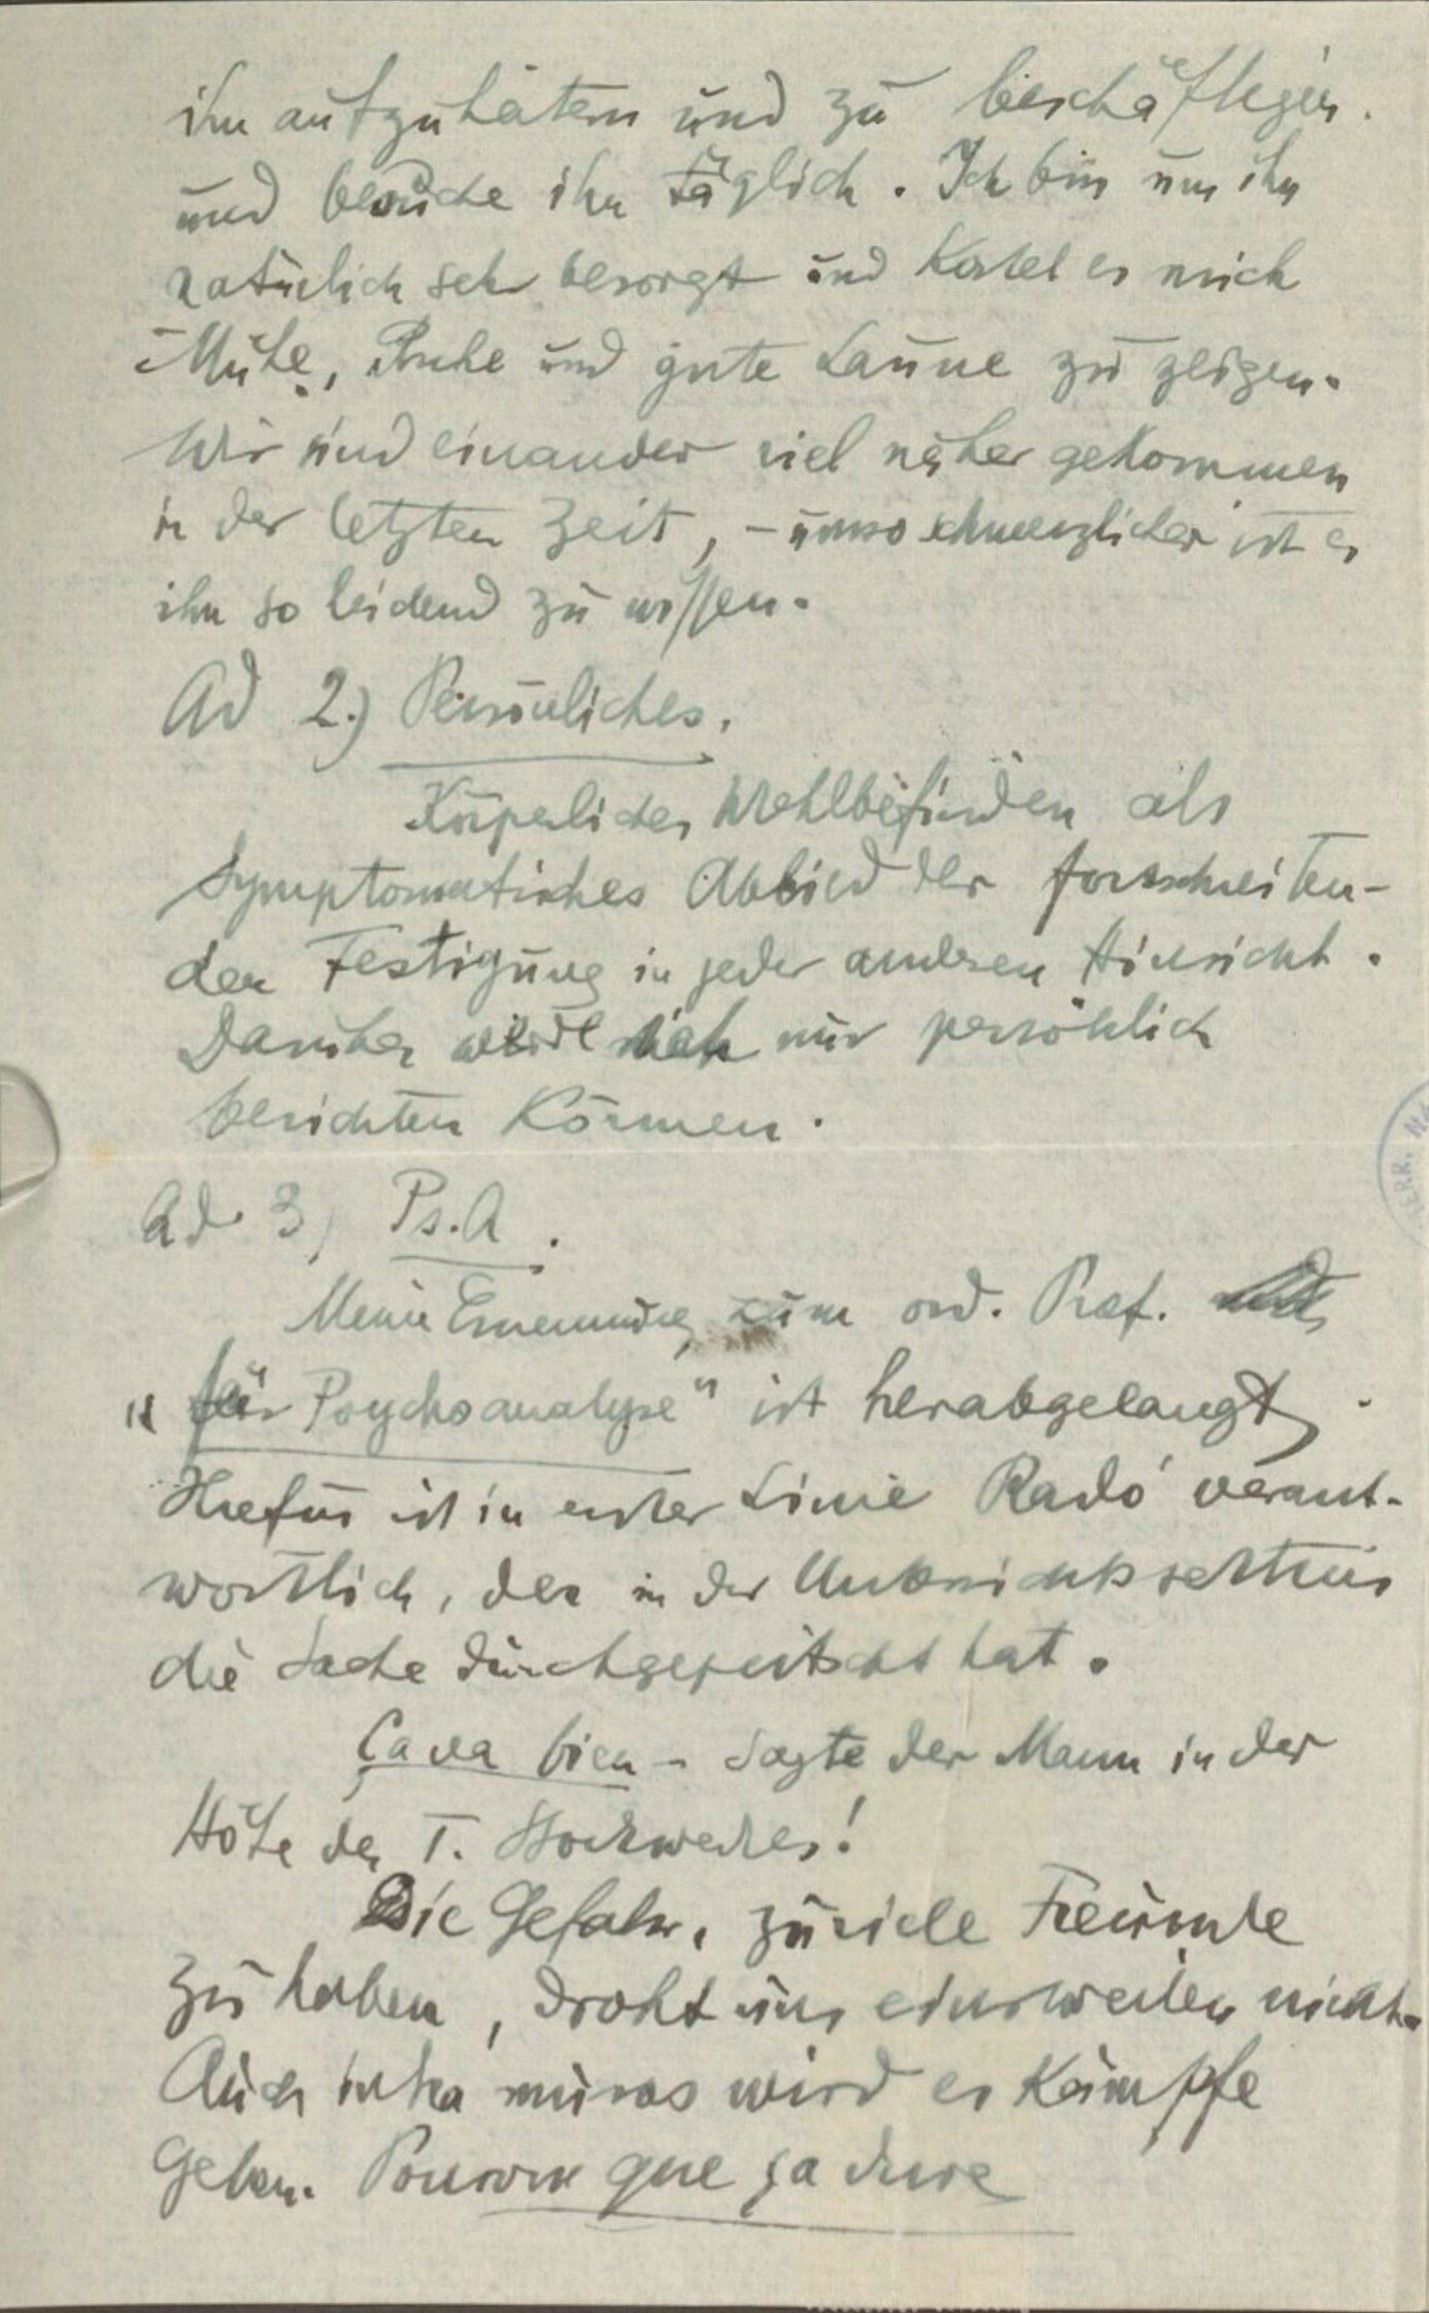 ihn aufzuheitern und zu beschäftigen.
und besuche ihn täglich. Ich bin um ihn
natürlich sehr besorgt und kostet es mich
Mühe, Ruhe und gute Laune zu zeigen.
Wir sind einander viel näher gekommen
in der letzten Zeit, - umso schmerzlicher ist es
ihn so leidend zu wissen.
Ad 2.) Persönliches.
Körperliches Wohlbefinden als
Symptomatisches Abbild der fortschreiten-
den Festigung in jeder anderen Hinsicht.
Darüber werde ich nur persönlich
berichten können.
Ad 3) Ps.A.
Meine Ernennung zum ord. Prof.
"für Psychoanalyse" ist herabgelangt.
Hiefür ist in erster Linie Radó verant-
wortlich, der in der Unterrichtssektion
die Sache durchgepeitscht hat.
Ça va bien - sagte der Mann in der
Höhe des I. Stockwerkes!
Die Gefahr, zuviele Freunde
zu haben, droht uns einstweilen nicht.
Auch intra muros wird es Kämpfe
geben. Pourvu que ça dure
HERR. NA